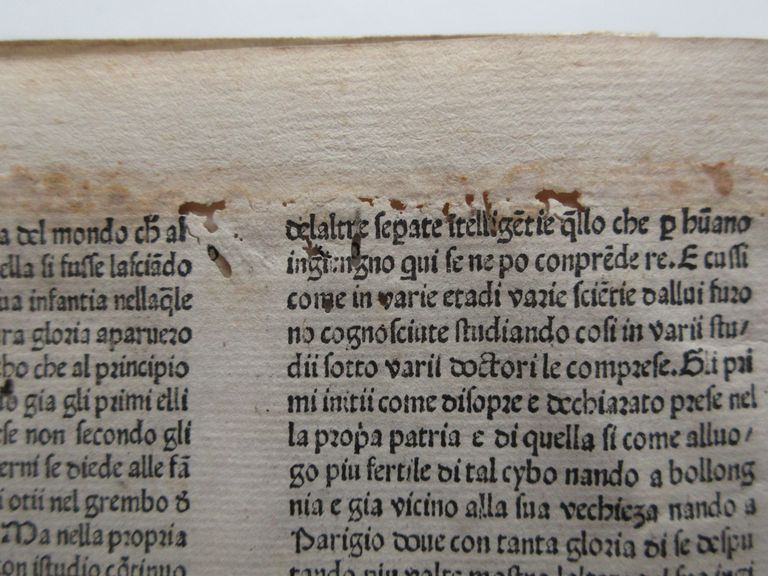 a del mondo ch̄ al
ella si fusse lasciādo
ua infantia nellaq̄le
ra gloria aparuero
ho che al principio
gia gli primi elli
se non secondo gli
erni se diede alle fā
i otii nel grembo d
Ma nella propria
on istudio cōtinuo
delaltre sep̱ate ītelligētie q̄llo che ꝑ hūano
qui se ne po conprēde re. E cussi
come in varie etadi varie sciētie dallui furo
no cognosciute studiando cosi in varii stu/
dii sotto varii doctori le comprese. Gli pri
mi initii come disopre e dechiarato prese nel
la prop̱a patria e di quella si come alluo/
go piu fertile di tal cybo nando a bollong
nia e gia vicino alla sua vechieza nando a
Parigio doue con tanta gloria di se despu